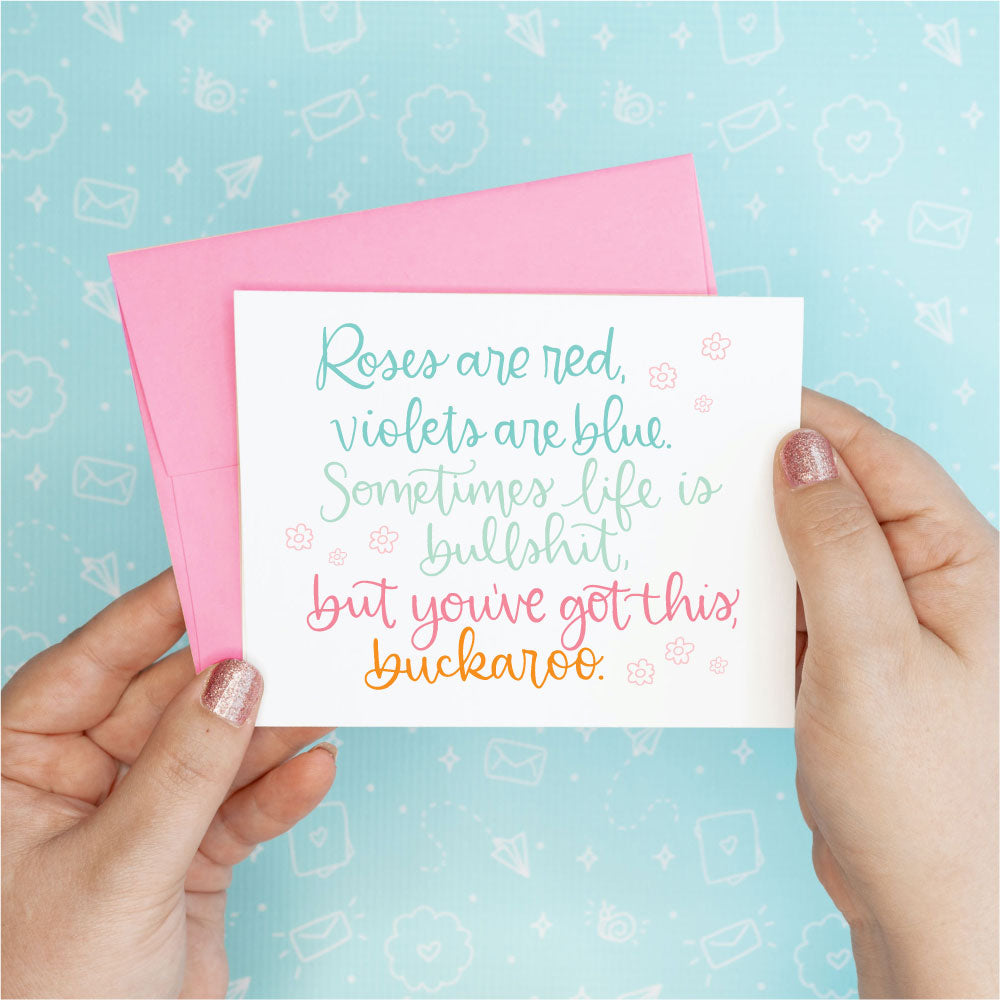 Roses are red,
violets are blue.
Sometimes life is
bullshit,
but you've got this,
buckaroo.